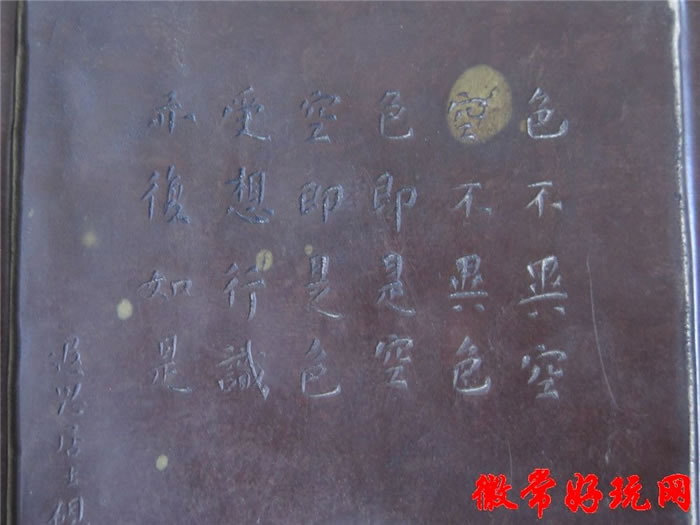 色不異空
空不異色
色即是空
空即是色
受想行識
亦復如是
居士
徽常好玩网